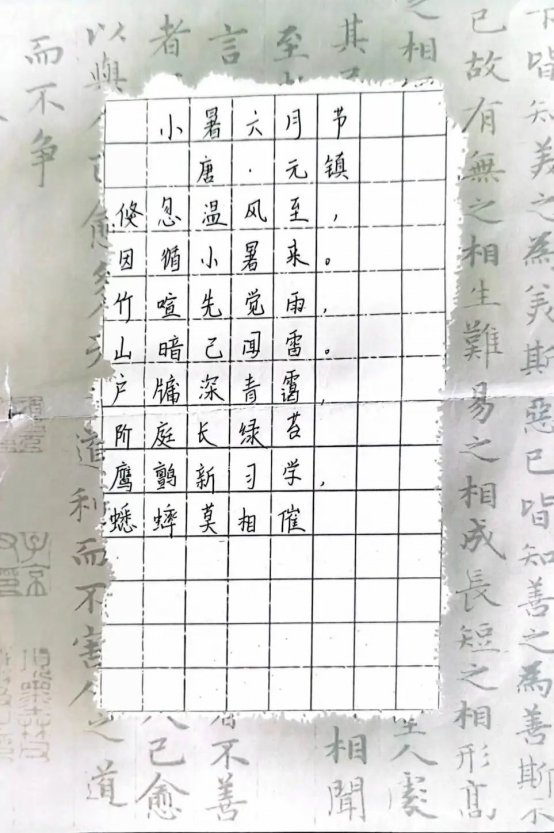 小暑六月节
唐·元镇
倏忽温风至，
因循小暑来。
竹喧先觉雨，
山暗已闻雷。
户牖深青霭，
阶庭长绿苔
鹰鹯新习学，
蟋蟀莫相催
下皆知美之為美斯惡已皆知善之為善斯不
已故有無之相生難易之相成長短之相形高
之相
人處
其
相聞
至
言
不善
者
己愈
以與人
道利而不害人之道
而不争